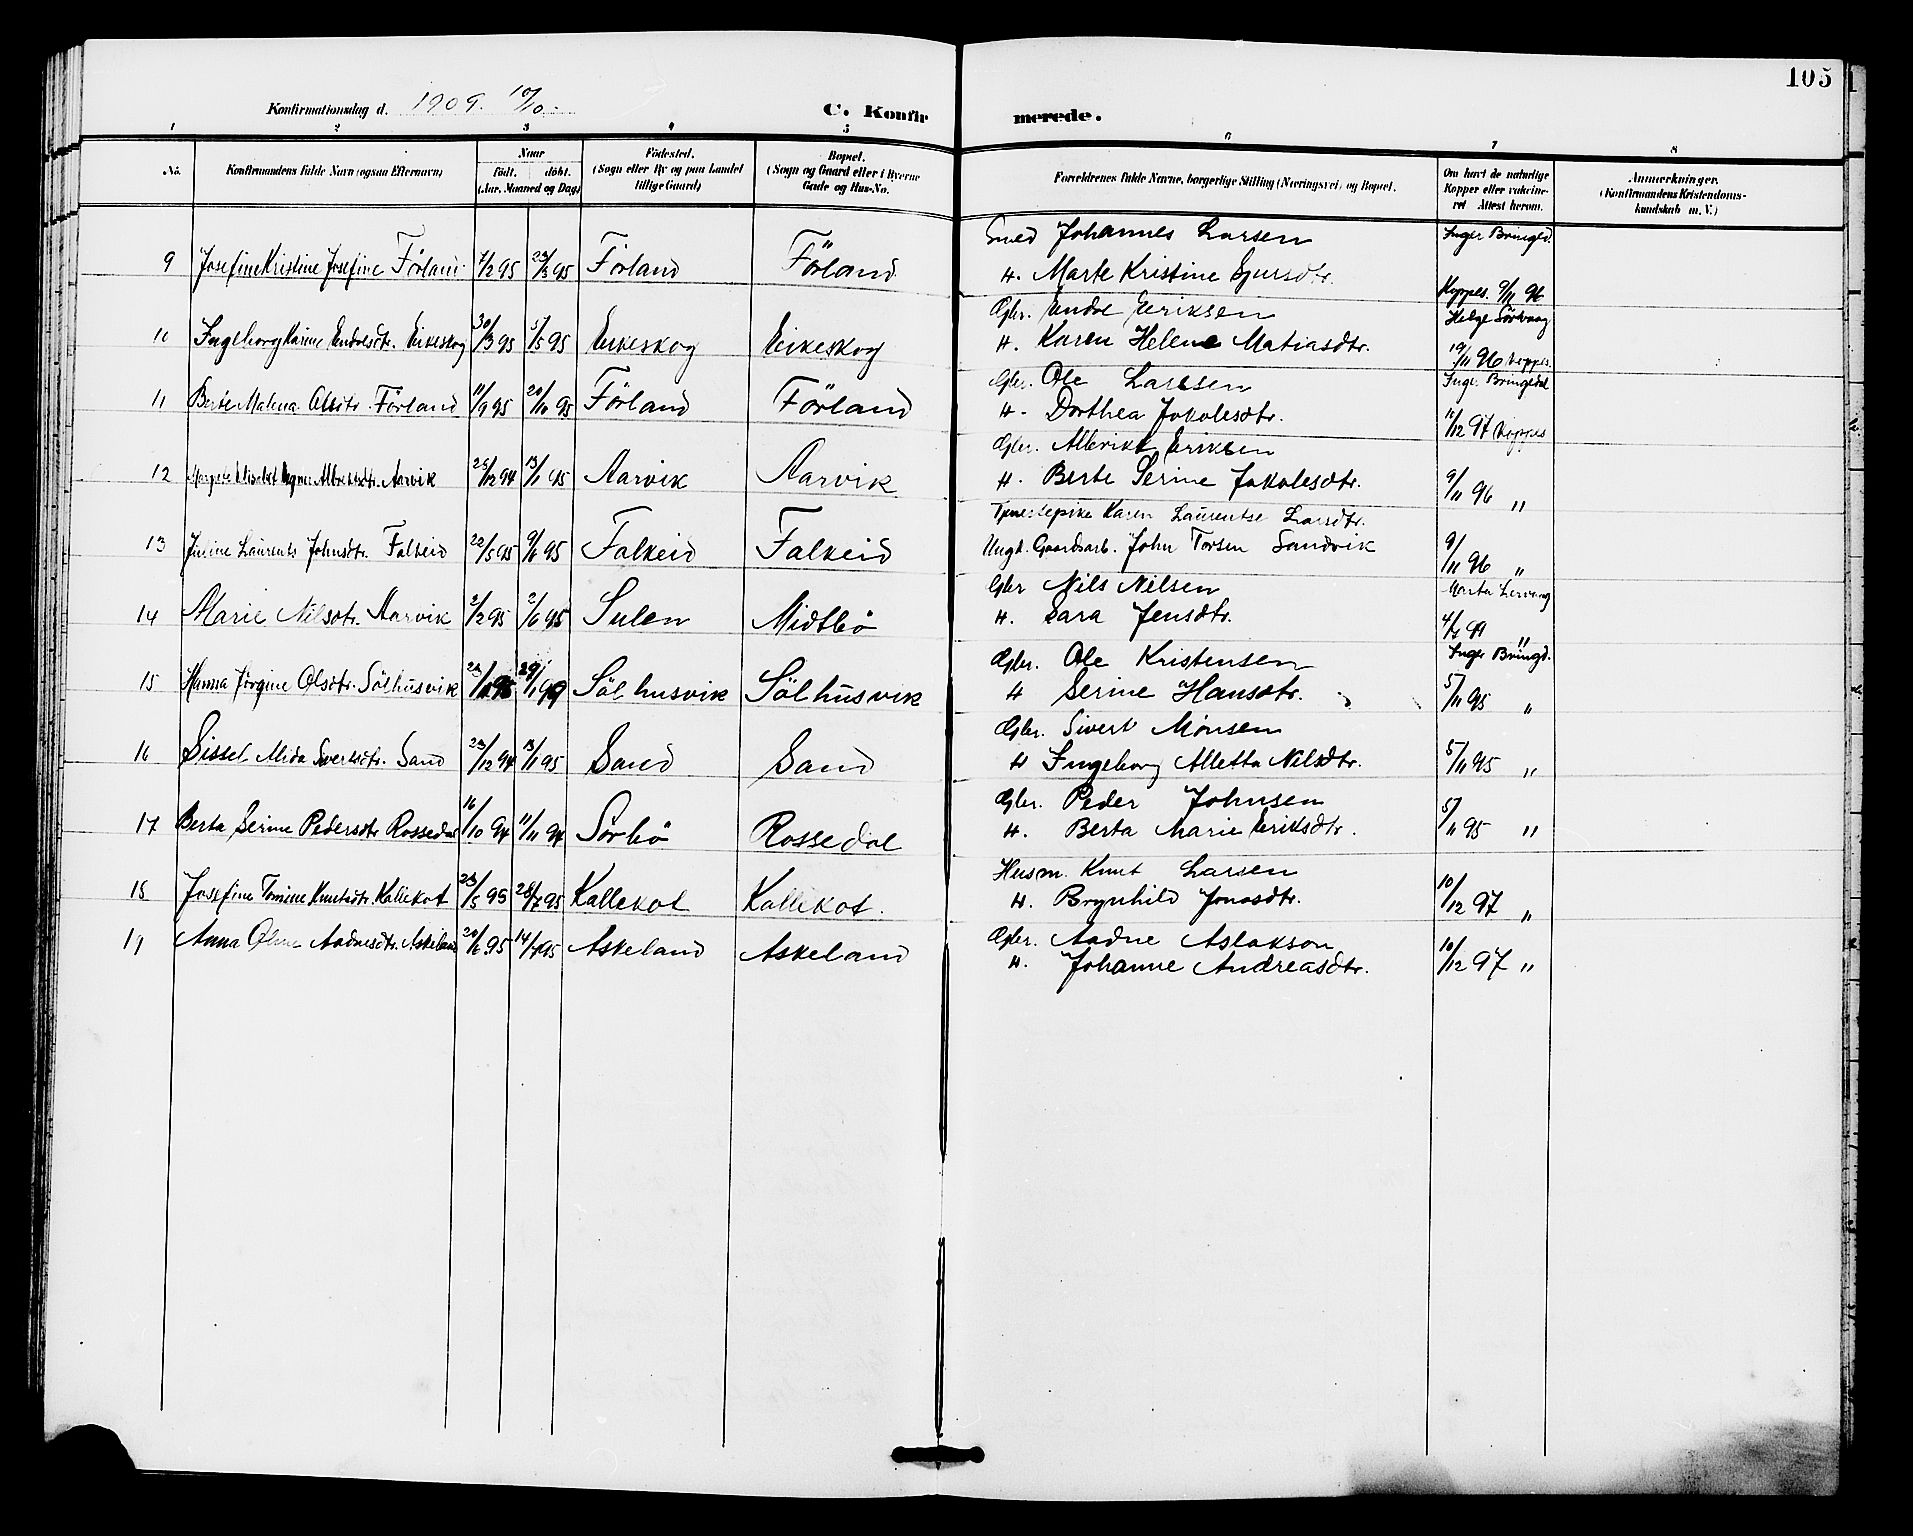 105
Konfirmationsdag d. 1909. 10/10.
C. Konfirmerede.
1 2 3 4 5 6 7 8
No.
Konfirmandens fulde Navn (ogsaa Efternavn)
Naar
födt. döbt.
(Aar, Maaned og Dag)
Födested.
(Sogn eller By og paa Landet
tillige Gaard)
Bopæl.
(Sogn og Gaard eller i Byerne
Gade og Hus-No.
Forældrenes fulde Navne, borgerlige Stilling (Næringsvei) og Bopæl.
Om havt de naturlige
Kopper eller vakcine-
ret Attest herom.
Anmærkninger.
(Konfirmandens Kristendoms-
kundskab m. V.)
Smed Johannes Larsen Inger Bringed.
9 Josefine Kristine Josefine Förland 95 95 Förland Förland
H. Marte Kristine Koppes. 9/11 96
Gbr. Endre Eriksen Helge
10 Ingeborg Karine Endresdtr. Eikeskog 30/3 95 5/5 95 Eikeskog Eikeskog
H. Karen Helene Matiasdtr. 96 Koppes.
Gbr. Ole Larsen Inger Bringedal
11 Berte Malena Olsdtr. Förland 11/9 95 20/10 95 Förland Förland
H. Dorthea Jakobsdtr. 12 97 Koppes
Gbr. Albrikt Eriksen
12 Aarvik 25/12 94 13/1 95 Aarvik Aarvik
H. Berte Serine Jakobsdtr. 9/11 96 "
Tjenestepike Karen Laurentse Larsdtr.
13 Laurents Johnsdtr. Falkeid 22/5 95 9/6 95 Falkeid Falkeid
Ungk. Gaardsarb. John Torsen Sandvik 9/11 96 "
Gbr Nils Nilsen Marta
14 Marie Nilsdtr. Aarvik 2/2 95 2/6 95 Sulen Midtbö
H. Sara Jensdtr. "
Gbr. Ole Kristensen Inger Bringd.
15 Hanna Jörgine Olsdtr. Sölhusvik Sölhusvik Sölhusvik
H Serine Hansdtr. 5/11 95 "
Gbr. Sivert Monsen
16 Sissel Alida Sivertsdtr. Sand 23/12 94 13/1 95 Sand Sand
H Ingeborg Alletta Nilsdtr. 5/11 95 "
Gbr. Peder Johnsen
17 Berta Serine Pedersdtr Rossedal 16/10 94 11/11 94 Sörbö Rossedal
H. Berta Marie Eriksdtr. 5/11 95 "
Husm. Knut Larsen
18 Josefine Tomine Knutsdtr. Kallekot 23/5 95 28/7 95 Kallekot Kallekot.
H. Brynhild Jonasdtr. 10/12 97 "
Gbr. Aadne Aslakson
19 Anna Aadnesdtr. Askeland 20/6 95 14/7 95 Askeland Askeland
H. Johanne Andreasdtr. 10/12 97 "